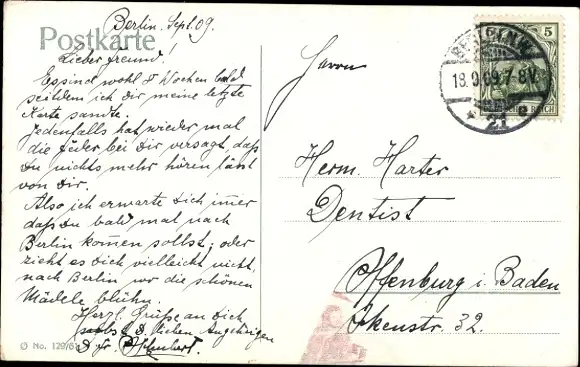 Berlin. Sept. 09.
Postkarte
Lieber Freund!
Es sind wohl 8 Wochen bald
seitdem ich dir meine letzte
Karte sandte.
Jedenfalls hat wieder mal
die Feder bei Dir versagt, daß
Du nichts mehr hören läßt
von Dir.
Also ich erwarte Dich immer
daß Du bald mal nach
Berlin kommen sollst; oder
zieht es Dich vielleicht nicht,
nach Berlin wo die schönen
Mädele blühn.
Herzl. Grüße an Dich
nebst d. lieben Angehörigen
D. Fr.
No. 129/61
Herrn
Herm. Harter
Dentist
Offenburg i. Baden
Okenstr. 32.
5
BERLIN N.W.
19.9.09. 7-8V.
21 e
REICH